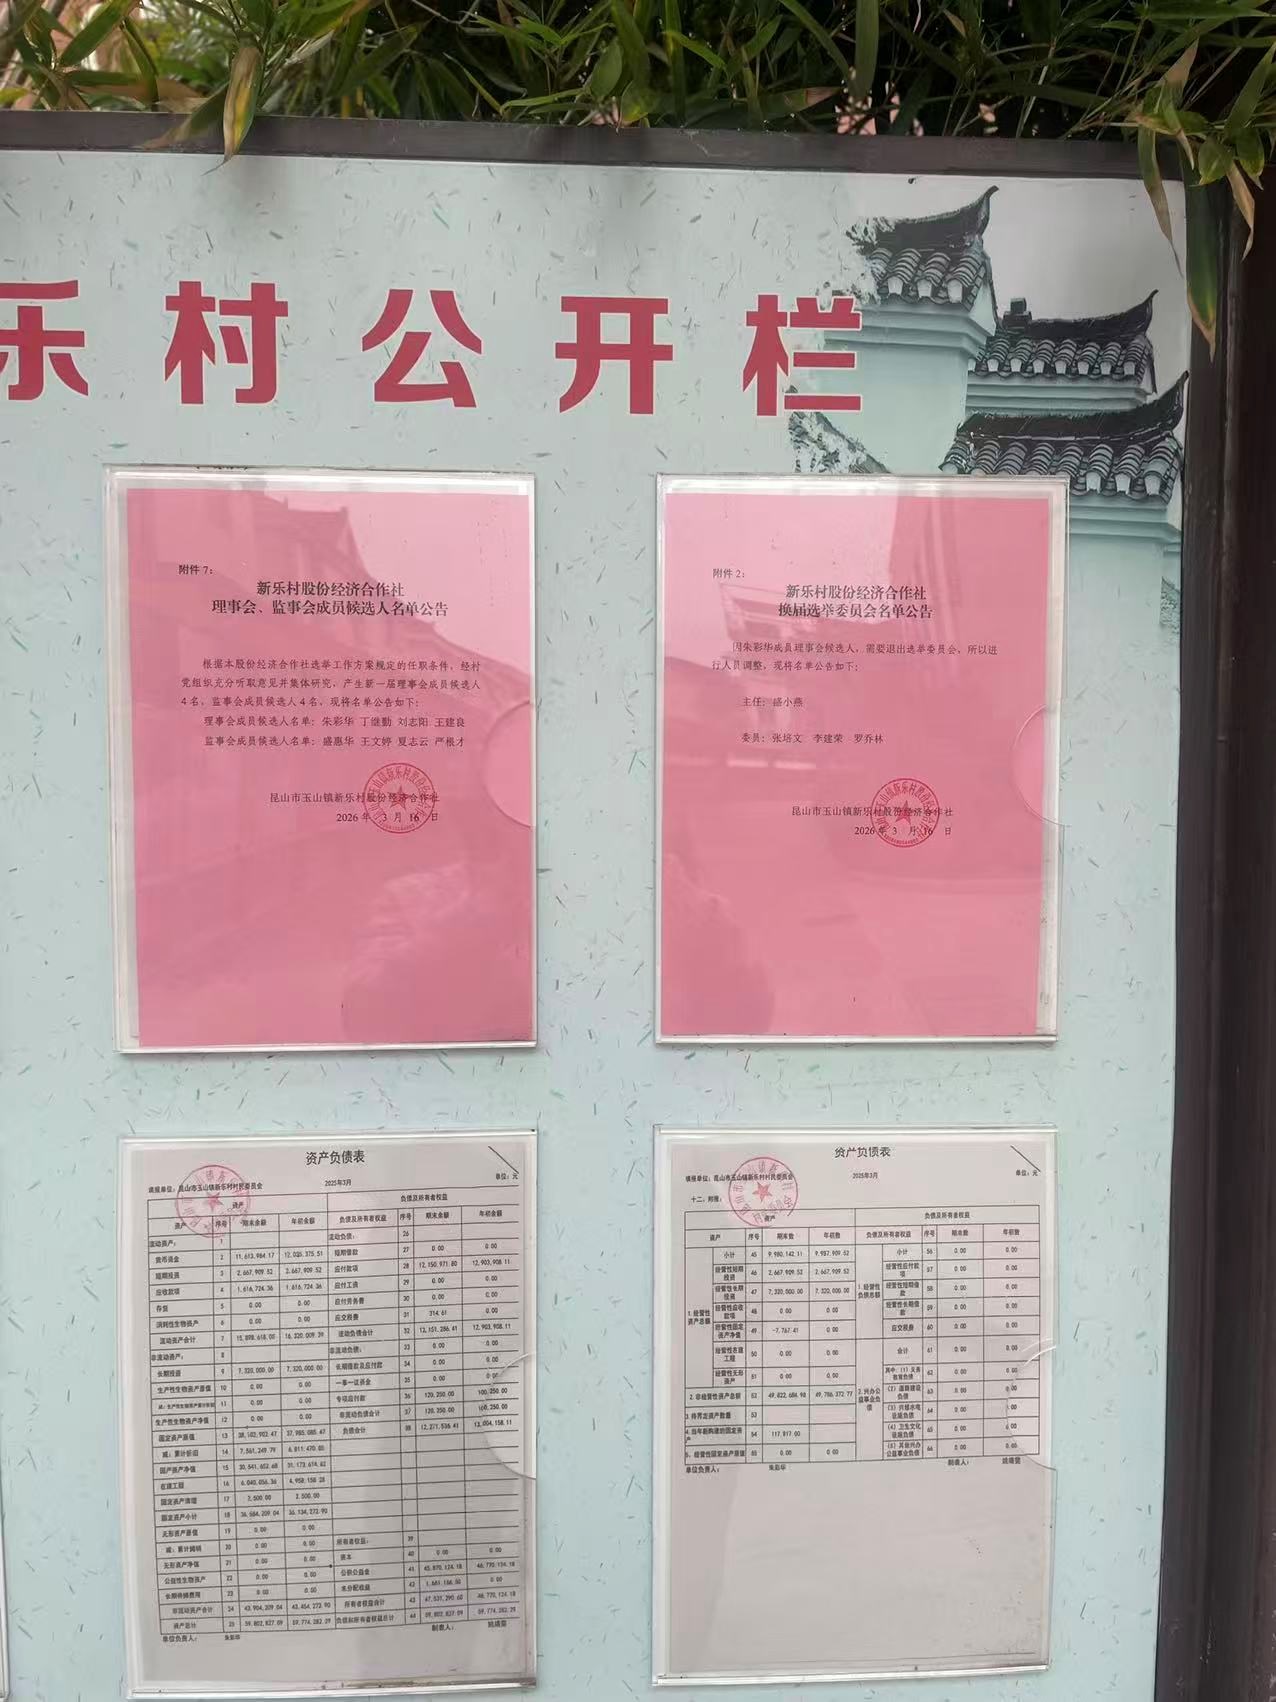 乐村公开栏
附件 7：
新乐村股份经济合作社
理事会、监事会成员候选人名单公告
根据本股份经济合作社选举工作方案规定的任职条件，经村
党组织充分听取意见并集体研究，产生新一届理事会成员候选人
4 名，监事会成员候选人 4 名，现将名单公告如下：
理事会成员候选人名单：朱彩华 丁继勤 刘志阳 王建良
监事会成员候选人名单：盛惠华 王文婷 夏志云 严根才
昆山市玉山镇新乐村股份经济合作社
2026 年 3 月 16 日
附件 2：
新乐村股份经济合作社
换届选举委员会名单公告
因朱彩华成员理事会候选人，需要退出选举委员会，所以进
行人员调整，现将名单公告如下：
主任：盛小燕
委员：张培文 李建荣 罗乔林
昆山市玉山镇新乐村股份经济合作社
2026 年 3 月 16 日
资产负债表
填报单位：昆山市玉山镇新乐村村民委员会 2025年3月 单位：元
资产 负债及所有者权益
资产 序号 期末余额 年初余额 负债及所有者权益 序号 期末余额 年初余额
流动资产： 1 流动负债： 26
货币资金 2 11,613,984.17 12,035,375.51 短期借款 27 0.00 0.00
短期投资 3 2,667,909.52 2,667,909.52 应付款项 28 12,150,971.80 12,903,908.11
应收款项 4 1,616,724.36 1,616,724.36 应付工资 29 0.00 0.00
存货 5 0.00 0.00 应付劳务费 30 0.00 0.00
消耗性生物资产 6 0.00 0.00 应交税费 31 314.61 0.00
流动资产合计 7 15,898,618.05 16,320,009.39 流动负债合计 32 12,151,286.41 12,903,908.11
非流动资产： 8 非流动负债： 33
长期投资 9 7,320,000.00 7,320,000.00 长期借款及应付款 34 0.00 0.00
生产性生物资产原值 10 0.00 0.00 一事一议资金 35 0.00 0.00
减：生产性生物资产累计折旧 11 0.00 0.00 专项应付款 36 120,250.00 100,250.00
生产性生物资产净值 12 0.00 0.00 非流动负债合计 37 120,250.00 100,250.00
固定资产原值 13 38,102,902.47 37,985,085.47 负债合计 38 12,271,536.41 13,004,158.11
减：累计折旧 14 7,561,249.79 6,811,470.85
固定资产净值 15 30,541,652.68 31,173,614.62
在建工程 16 6,040,056.36 4,958,158.28
固定资产清理 17 2,500.00 2,500.00
固定资产小计 18 36,584,209.04 36,134,272.90
无形资产原值 19 0.00 0.00
减：累计摊销 20 0.00 0.00 所有者权益： 39
无形资产净值 21 0.00 0.00 资本 40 0.00 0.00
公益性生物资产 22 0.00 0.00 公积公益金 41 45,870,124.18 46,770,124.18
长期待摊费用 23 0.00 0.00 未分配收益 42 1,661,166.50 0.00
非流动资产合计 24 43,904,209.04 43,454,272.90 所有者权益合计 43 47,531,290.68 46,770,124.18
资产总计 25 59,802,827.09 59,774,282.29 负债和所有者权益总计 44 59,802,827.09 59,774,282.29
单位负责人： 朱彩华 制表人：
资产负债表
填报单位：昆山市玉山镇新乐村村民委员会 2025年3月 单位：元
十二、附报：
资产 负债及所有者权益
资产 序号 期末数 年初数 负债及所有者权益 序号 期末数 年初数
1.经营性资产总额 小计 45 9,980,142.11 9,987,909.52 1.经营性负债总额 小计 56 0.00 0.00
经营性短期投资 46 2,667,909.52 2,667,909.52 经营性应付款项 57 0.00 0.00
经营性长期投资 47 7,320,000.00 7,320,000.00 经营性短期借款 58 0.00 0.00
经营性应收款项 48 0.00 0.00 经营性长期借款 59 0.00 0.00
经营性固定资产净值 49 -7,767.41 0.00 应交税费 60 0.00 0.00
经营性在建工程 50 0.00 0.00 2.兴办公益事业负债 合计 61 0.00 0.00
经营性无形资产 51 0.00 0.00 其中：（1）义务教育负债 62 0.00 0.00
2.非经营性资产总额 52 49,822,684.98 49,786,372.77 （2）道路建设负债 63 0.00 0.00
3.待界定资产数量 53 （3）兴修水电设施负债 64 0.00 0.00
4.当年新购建的固定资产 54 117,817.00 （4）卫生文化设施负债 65 0.00 0.00
5.经营性固定资产原值 55 0.00 0.00 （5）其他兴办公益事业负债 66 0.00 0.00
单位负责人： 朱彩华 制表人：